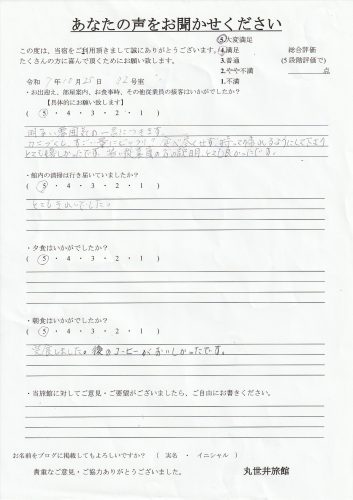 あなたの声をお聞かせください
⑤大変満足
この度は、当宿をご利用頂きまして誠にありがとうございます。 4.満足 総合評価
たくさんの方に喜んで頂くためにお願い致します。 3.普通 (5段階評価で)
2.やや不満 点
令和 7年 10月 25日 号室 1.不満
・お出迎え、部屋案内、お食事時、その他従業員の接客はいかがでしたか?
【具体的にお願い致します】
( ⑤ ・ 4 ・ 3 ・ 2 ・ 1 )
明るい雰囲気の一言につきます。
とても嬉しかったです。 の説明、とても良かったです。
・館内の清掃は行き届いていましたか?
( ⑤ ・ 4 ・ 3 ・ 2 ・ 1 )
とてもきれいでした。
・夕食はいかがでしたか?
( ⑤ ・ 4 ・ 3 ・ 2 ・ 1 )
・朝食はいかがでしたか?
( ⑤ ・ 4 ・ 3 ・ 2 ・ 1 )
完食しました。後のコーヒーがおいしかったです。
・当旅館に対してご意見・ご要望がございましたら、ご自由にお書きください。
お名前をブログに掲載してもよろしいですか? ( 実名 ・ イニシャル )
貴重なご意見・ご協力ありがとうございました。 丸世井旅館